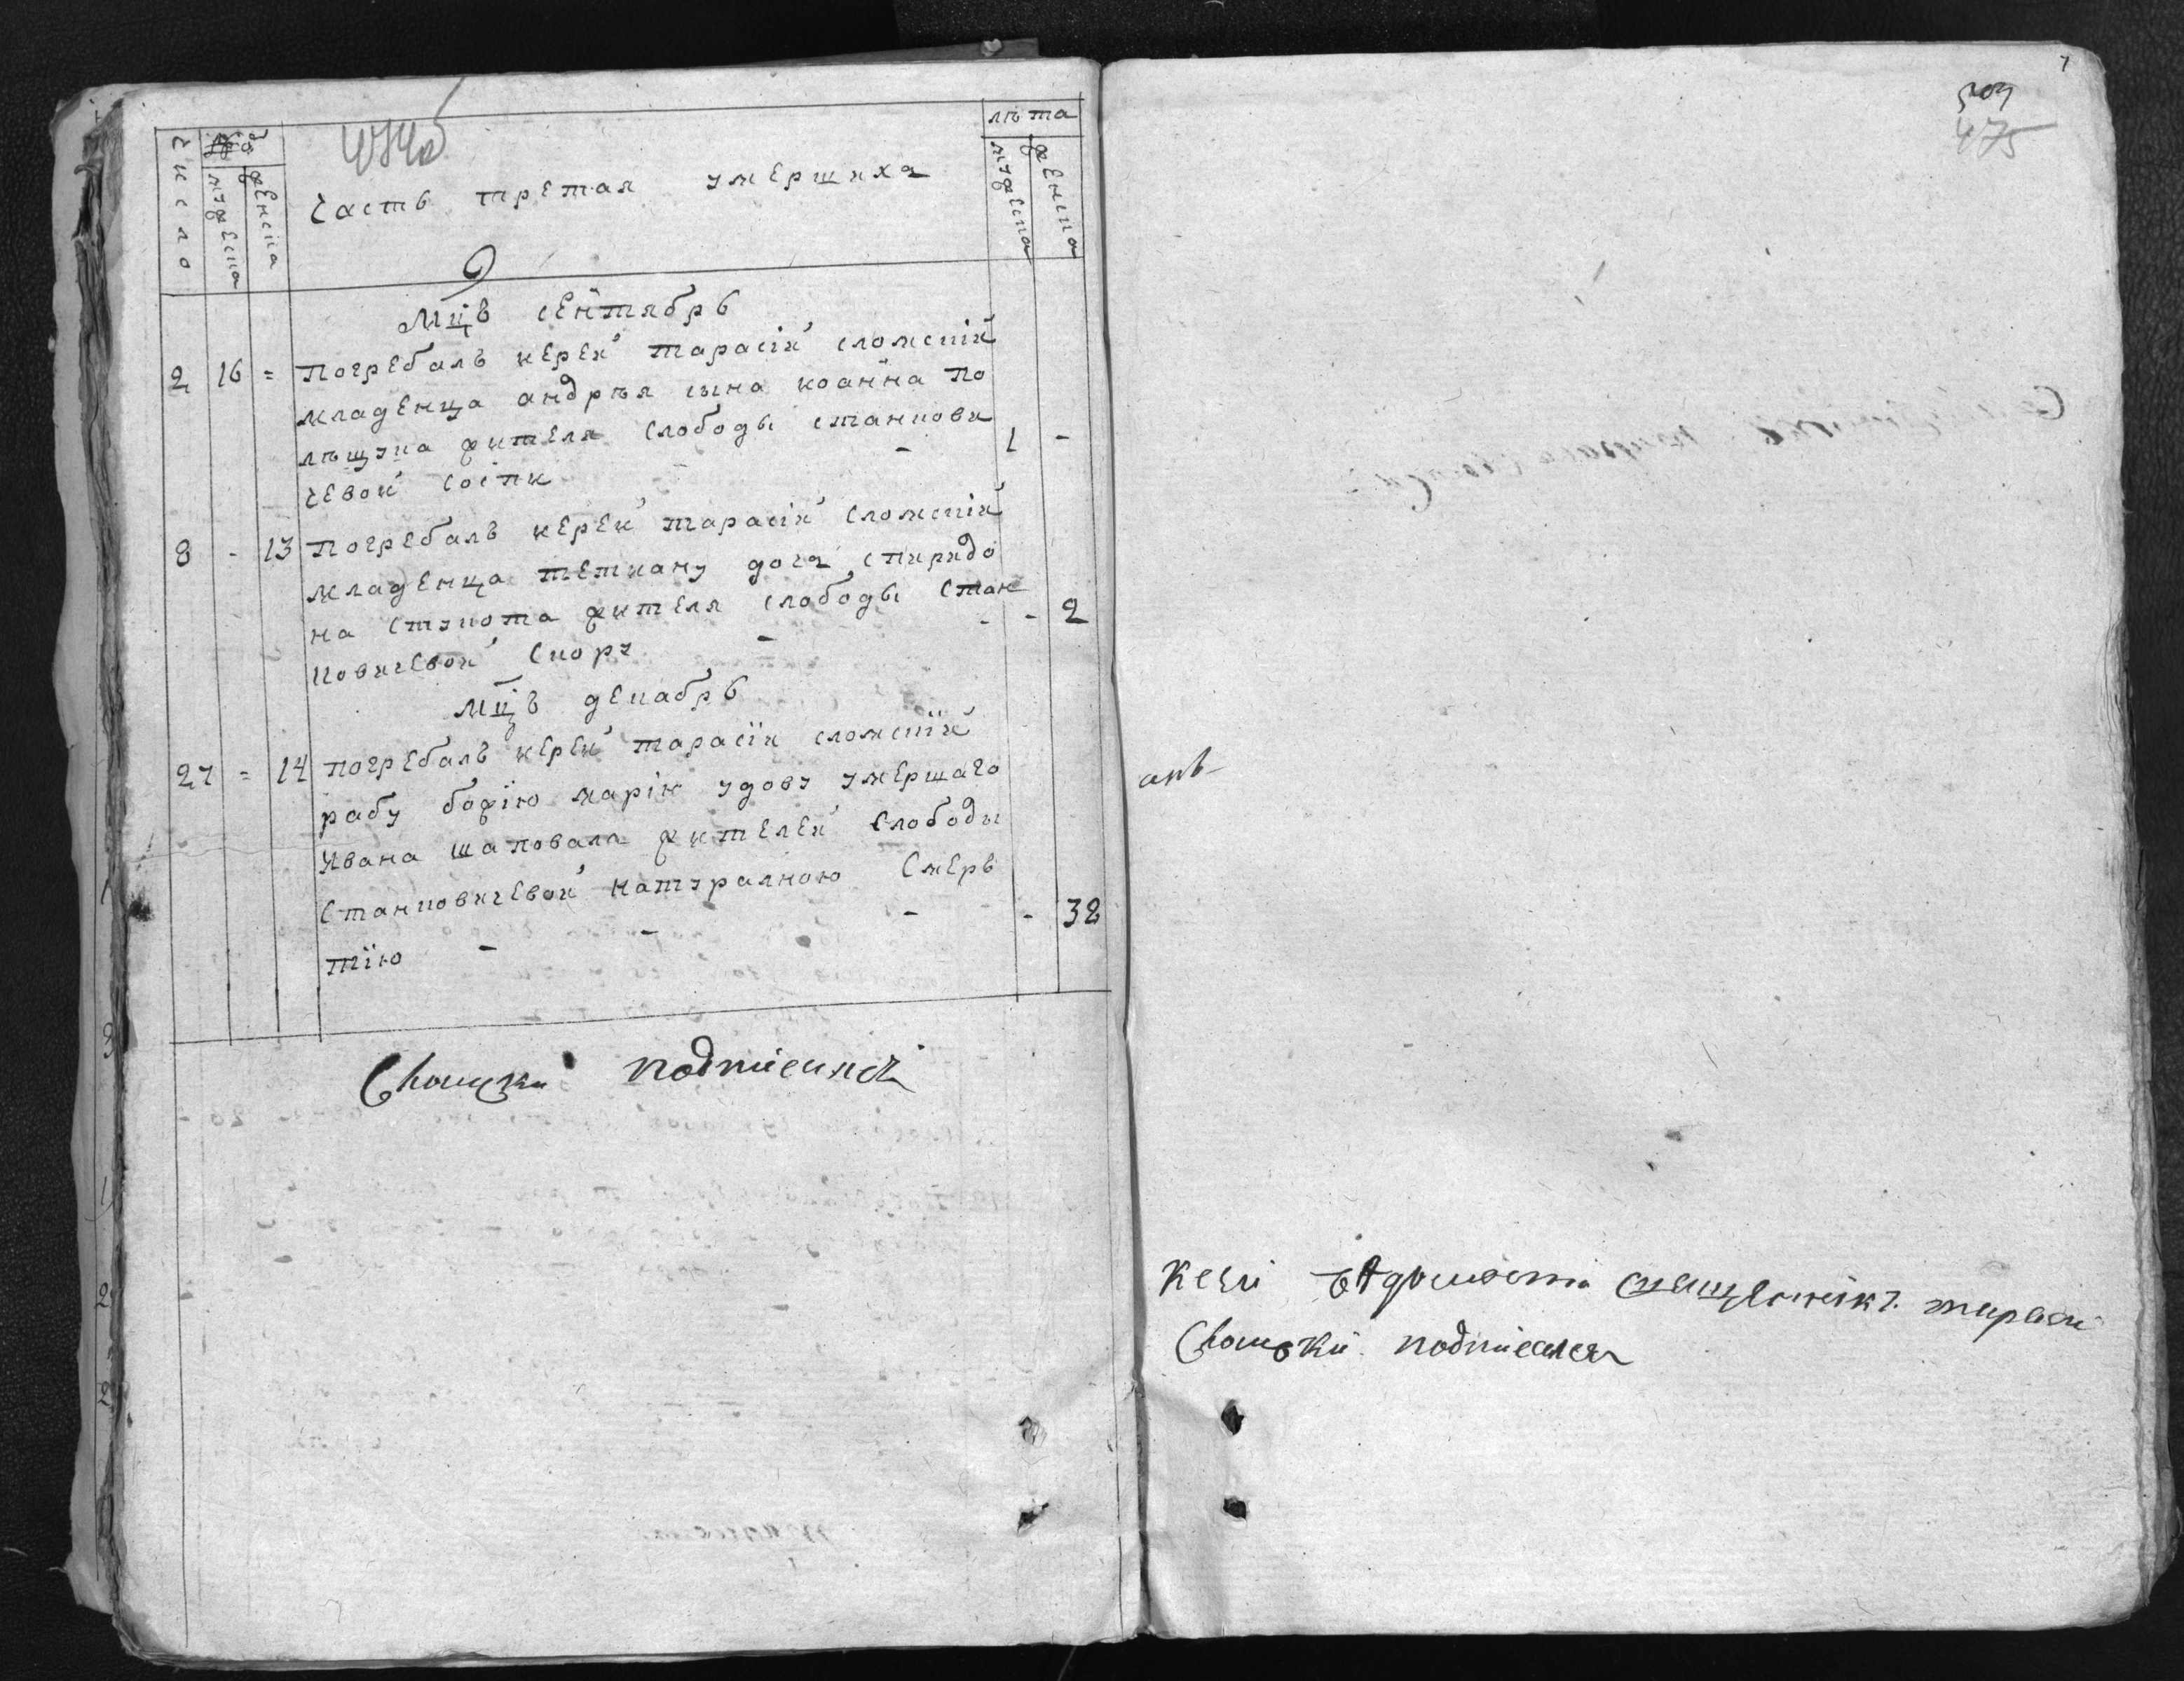 474об
число
мужеска
женска
Часть третая умершихъ
лѣта
мужеска
женска
9
Мцъ сентябрь
2 16 = погребалъ иерей тарасій сломскій
младенца андрѣя сына иоанна по
лѣщука жителя слободы станкови
чевой соспи - 1 -
8 - 13 погребалъ иерей тарасій сломскій
младенца тетиану дочъ спиридо
на стукота жителя слободы стан
ковичевой скорч - - - 2
Мцъ декабрь
27 = 14 погребалъ иерей тарасій сломскій
рабу божію марію удову умершаго
ивана шаповала жителей слободы
станковичевой натуралною смерь
тію - - - - 32
Сломски подписался
475
Тараси
Сломски подписался